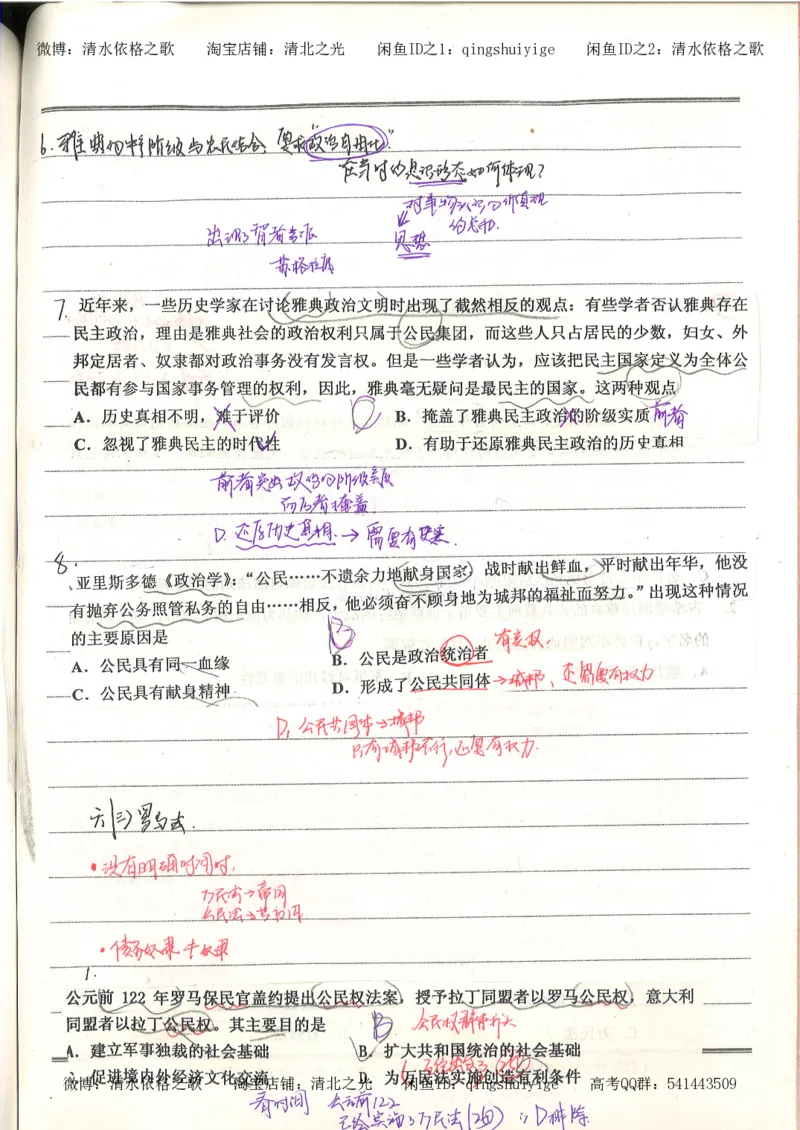 微博：清水依格之歌 淘宝店铺：清北之光 闲鱼ID之1：qingshuiyige 闲鱼ID之2：清水依格之歌
6. 雅典的中产阶级与农民结合，要求"政治自由化"
在当时的意识形态如何体现？
对事物认识的
的总和.
出现了智者学派
思想
苏格拉底
7. 近年来，一些历史学家在讨论雅典政治文明时出现了截然相反的观点：有些学者否认雅典存在
民主政治，理由是雅典社会的政治权利只属于公民集团，而这些人只占居民的少数，妇女、外
邦定居者、奴隶都对政治事务没有发言权。但是一些学者认为，应该把民主国家定义为全体公
民都有参与国家事务管理的权利，因此，雅典毫无疑问是最民主的国家。这两种观点
A．历史真相不明，难于评价 D B．掩盖了雅典民主政治的阶级实质 前者
C．忽视了雅典民主的时代性 D．有助于还原雅典民主政治的历史真相
前者突出政治的阶级实质
而后者掩盖
D. 还原历史真相 → 需要有史实.
8.
亚里斯多德《政治学》：“公民……不遗余力地献身国家）战时献出鲜血，平时献出年华，他没
有抛弃公务照管私务的自由……相反，他必须奋不顾身地为城邦的福祉而努力。”出现这种情况
的主要原因是 B
有主权.
A．公民具有同一血缘 B．公民是政治统治者
C．公民具有献身精神 D．形成了公民共同体 →城邦、还需要有权力
D. 公民共同体→城邦
只有城邦不行,还要有权力.
六(三)罗马法.
·没有明确时间时,
万民法→帝国
公民法→共和国
·债务奴隶≠奴隶
1.
公元前 122 年罗马保民官盖约提出公民权法案，授予拉丁同盟者以罗马公民权，意大利
同盟者以拉丁公民权。其主要目的是 B 公民权群体扩大
A．建立军事独裁的社会基础 B．扩大共和国统治的社会基础
促进境内外经济文化交流 D．为万民法实施创造有利条件
微博：清水依格之歌 淘宝店铺：清北之光 闲鱼ID：qingshuiyige 高考QQ群：541443509
看时间 公元前122
已经实施了万民法 ∴D排除.